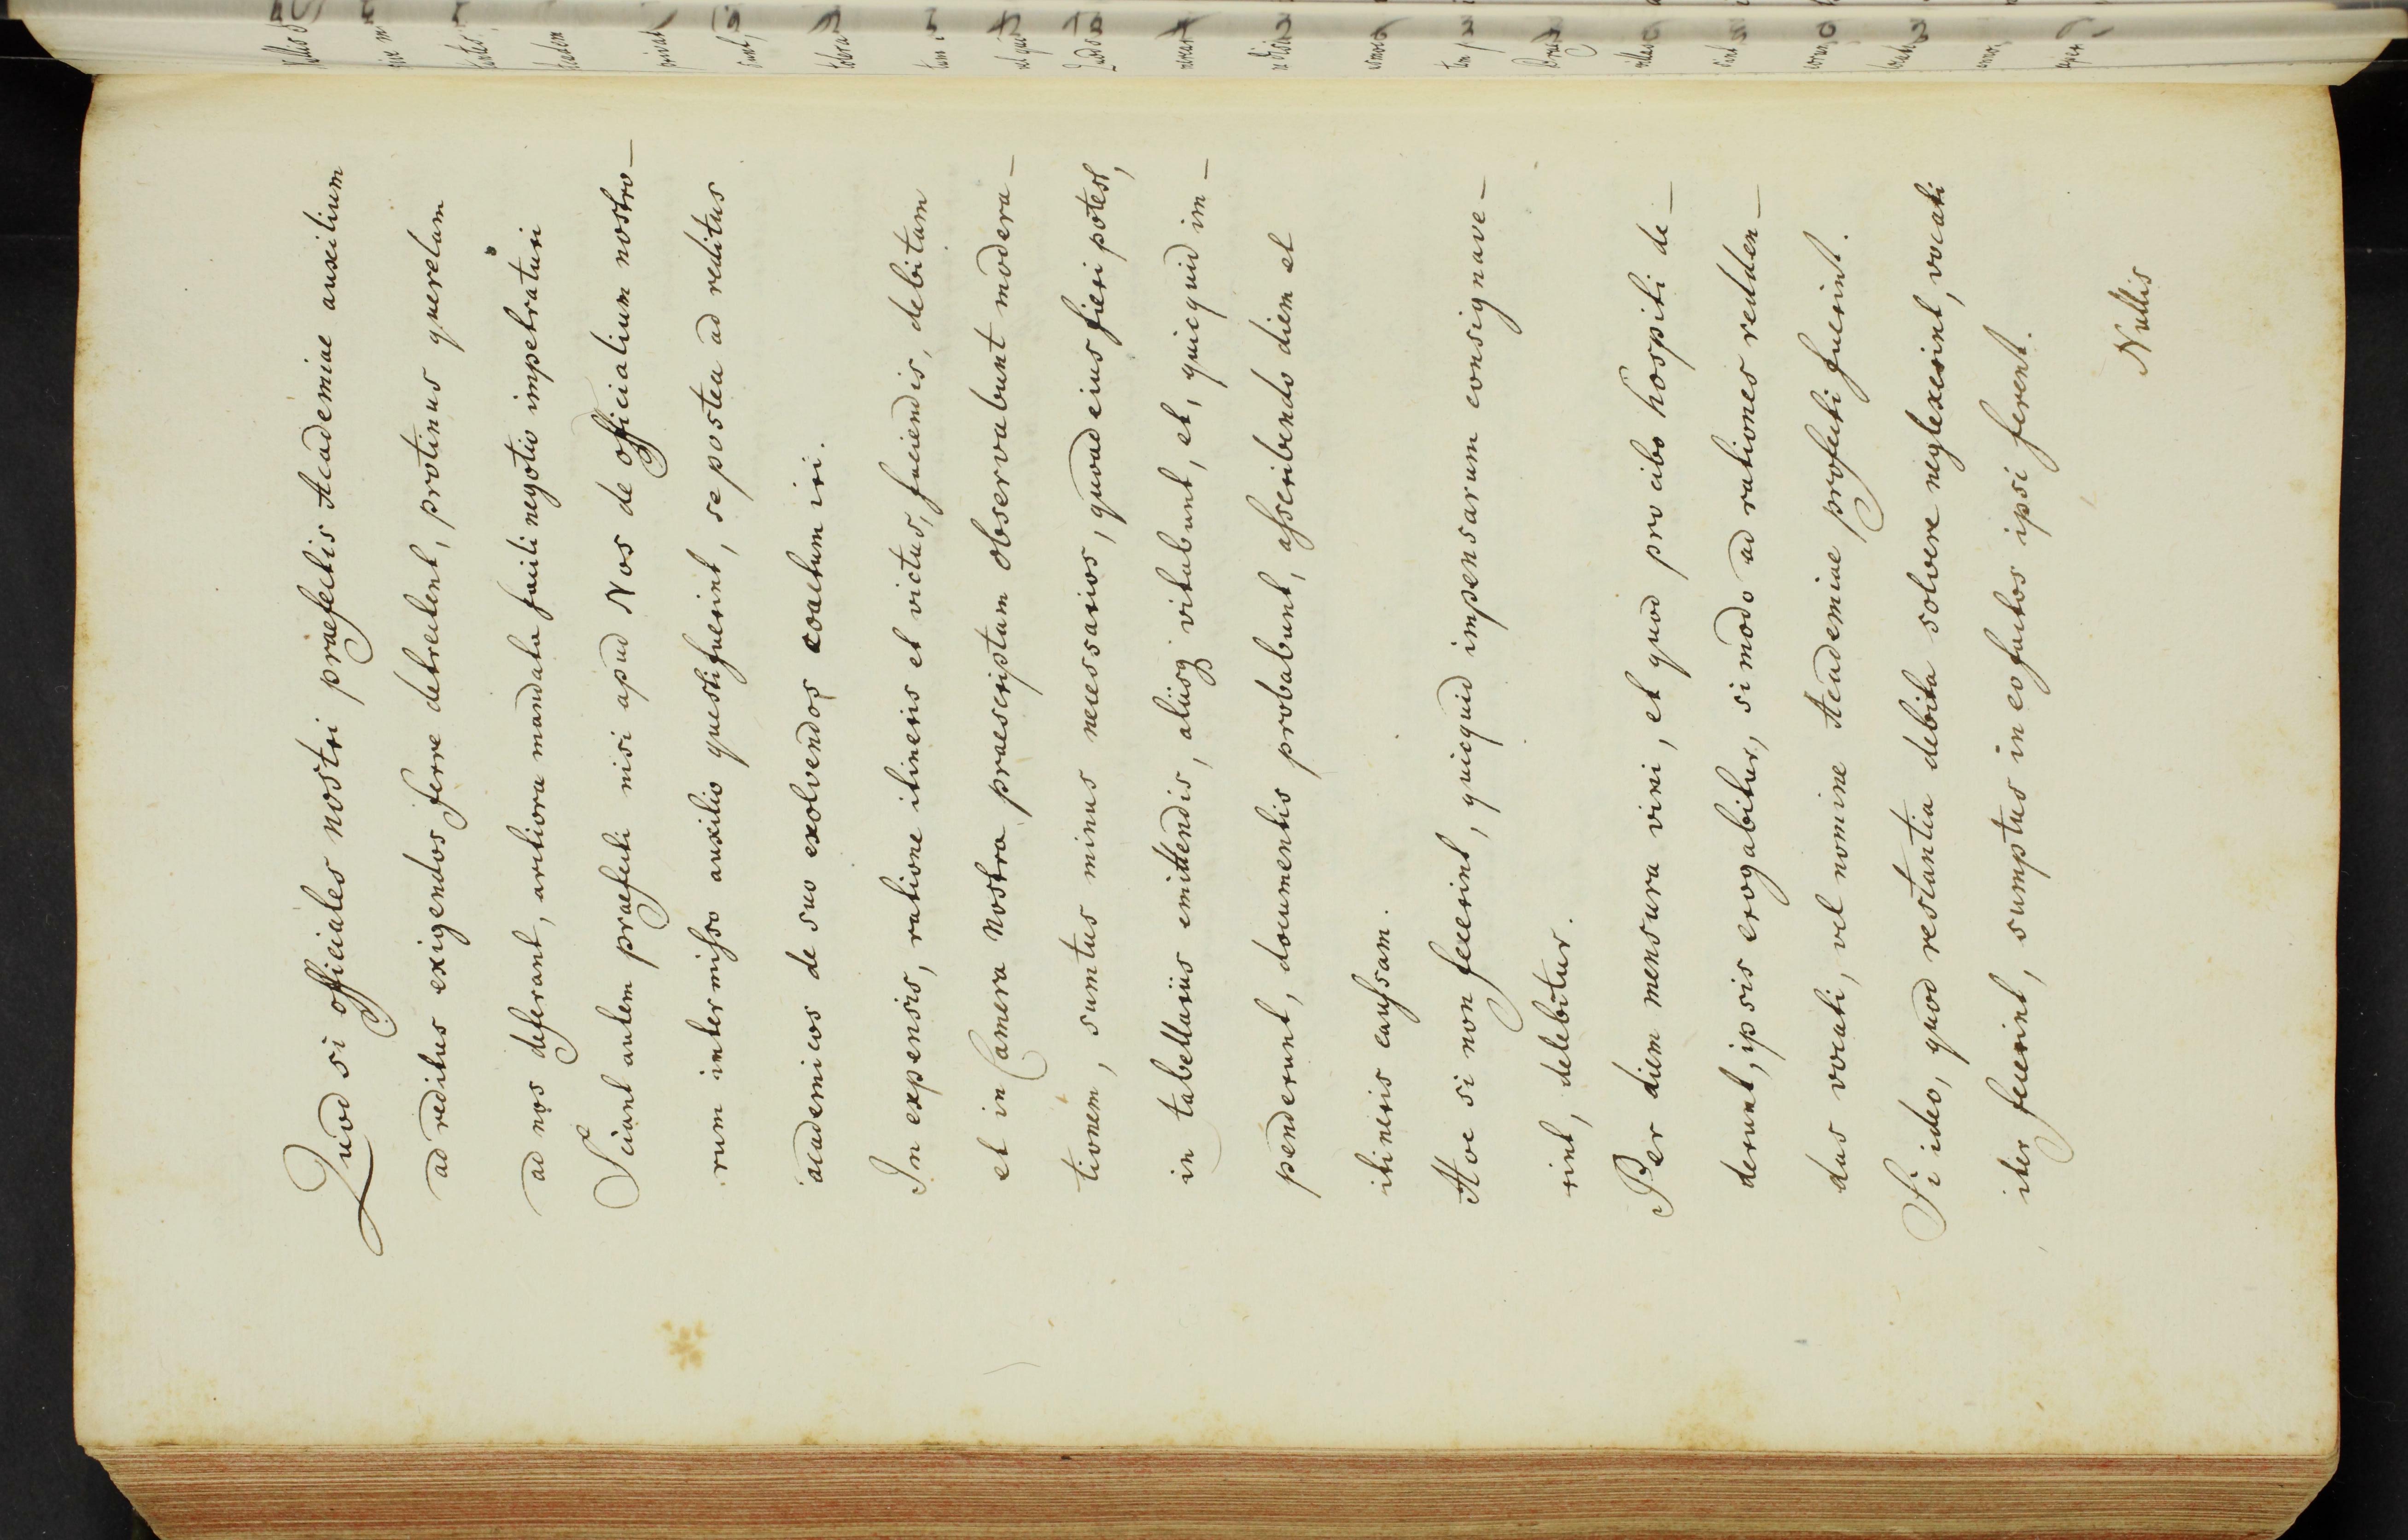 Quod si officiales nostri praefectis Academiae auxilium
ad reditus exigendos ferre detrectent, protinus querelam
ad nos deferant, arctiora mandata facili negotio impetraturi
Sciant autem praefecti nisi apud Nos de officialium nostro-
rum intermisso auxilio questi fuerint, se postea ad reditus
academicos de suo exolvendos coactum iri.
In expensis, ratione itineris et victus, faciendis, debitam
et in Camera nostra praescriptam observabunt modera-
tionem, sumtus minus necessarios, quoad eius fieri potest,
in tabellariis emittendis, aliisq vitabunt, et, quicquid im-
penderunt, documentis probabunt, asscribendo diem et
itineris caussam.
Hoc si non fecerint, quicquid impensarum consignave-
rint, delebitur.
Per diem mensura vini, et quod pro cibo hospiti de-
derunt, ipsis erogabitur, si modo ad rationes redden-
das vocati, vel nomine Academiae profecti fuerint.
Si ideo, quod restantia debita solvere neglexerint, vocati
iter fecerint, sumptus in eo factos ipsi ferent.
Nullis